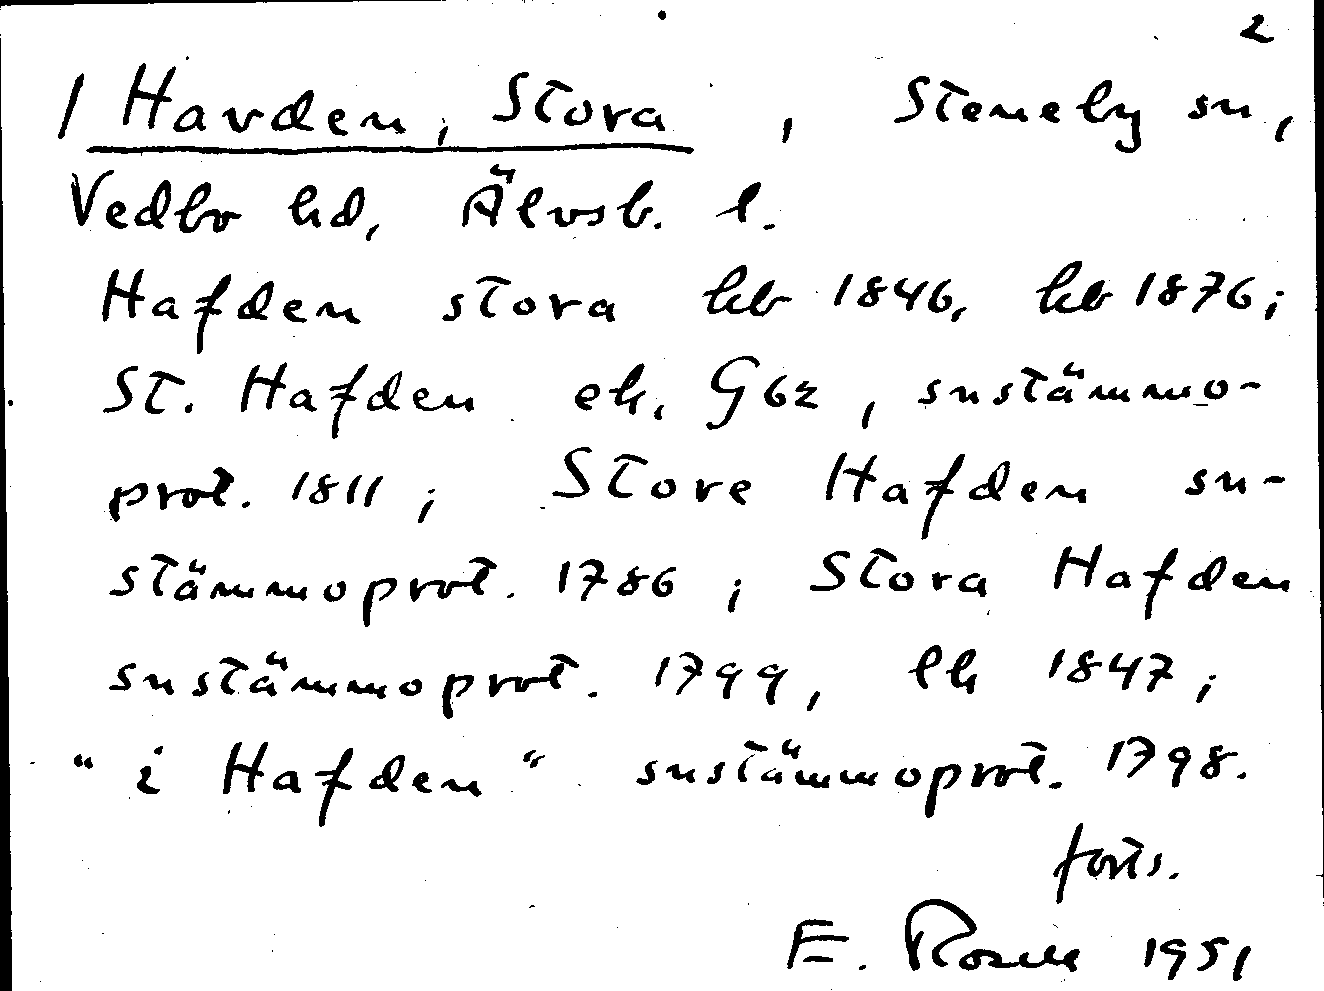 2
/ Havden, Stora, Steneby sn,
Vedbo hd, Älvsb. l.
Hafden stora hb 1846, hb 1876;
St. Hafden ek. G62, sustämmo-
prot. 1811; Store Hafden sn-
stämmoprot. 1786; Stora Hafden
snstämmoprot. 1799, lh 1847;
"i Hafden" snstämmoprot. 1798.
forts.
E. Rosell 1951